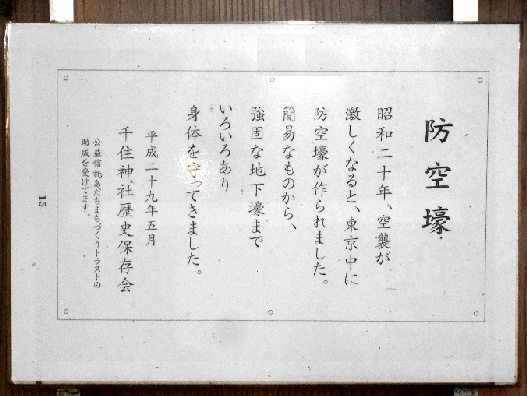 防空壕
昭和二十年、空襲が
激しくなると、東京中に
防空壕が作られました。
簡易なものから、
強固な地下濠まで
いろいろあり
身体を守ってきました。
平成二十九年五月
千住神社歴史保存会
公益信託あだちまちづくりトラストの
助成を受けてます。
15